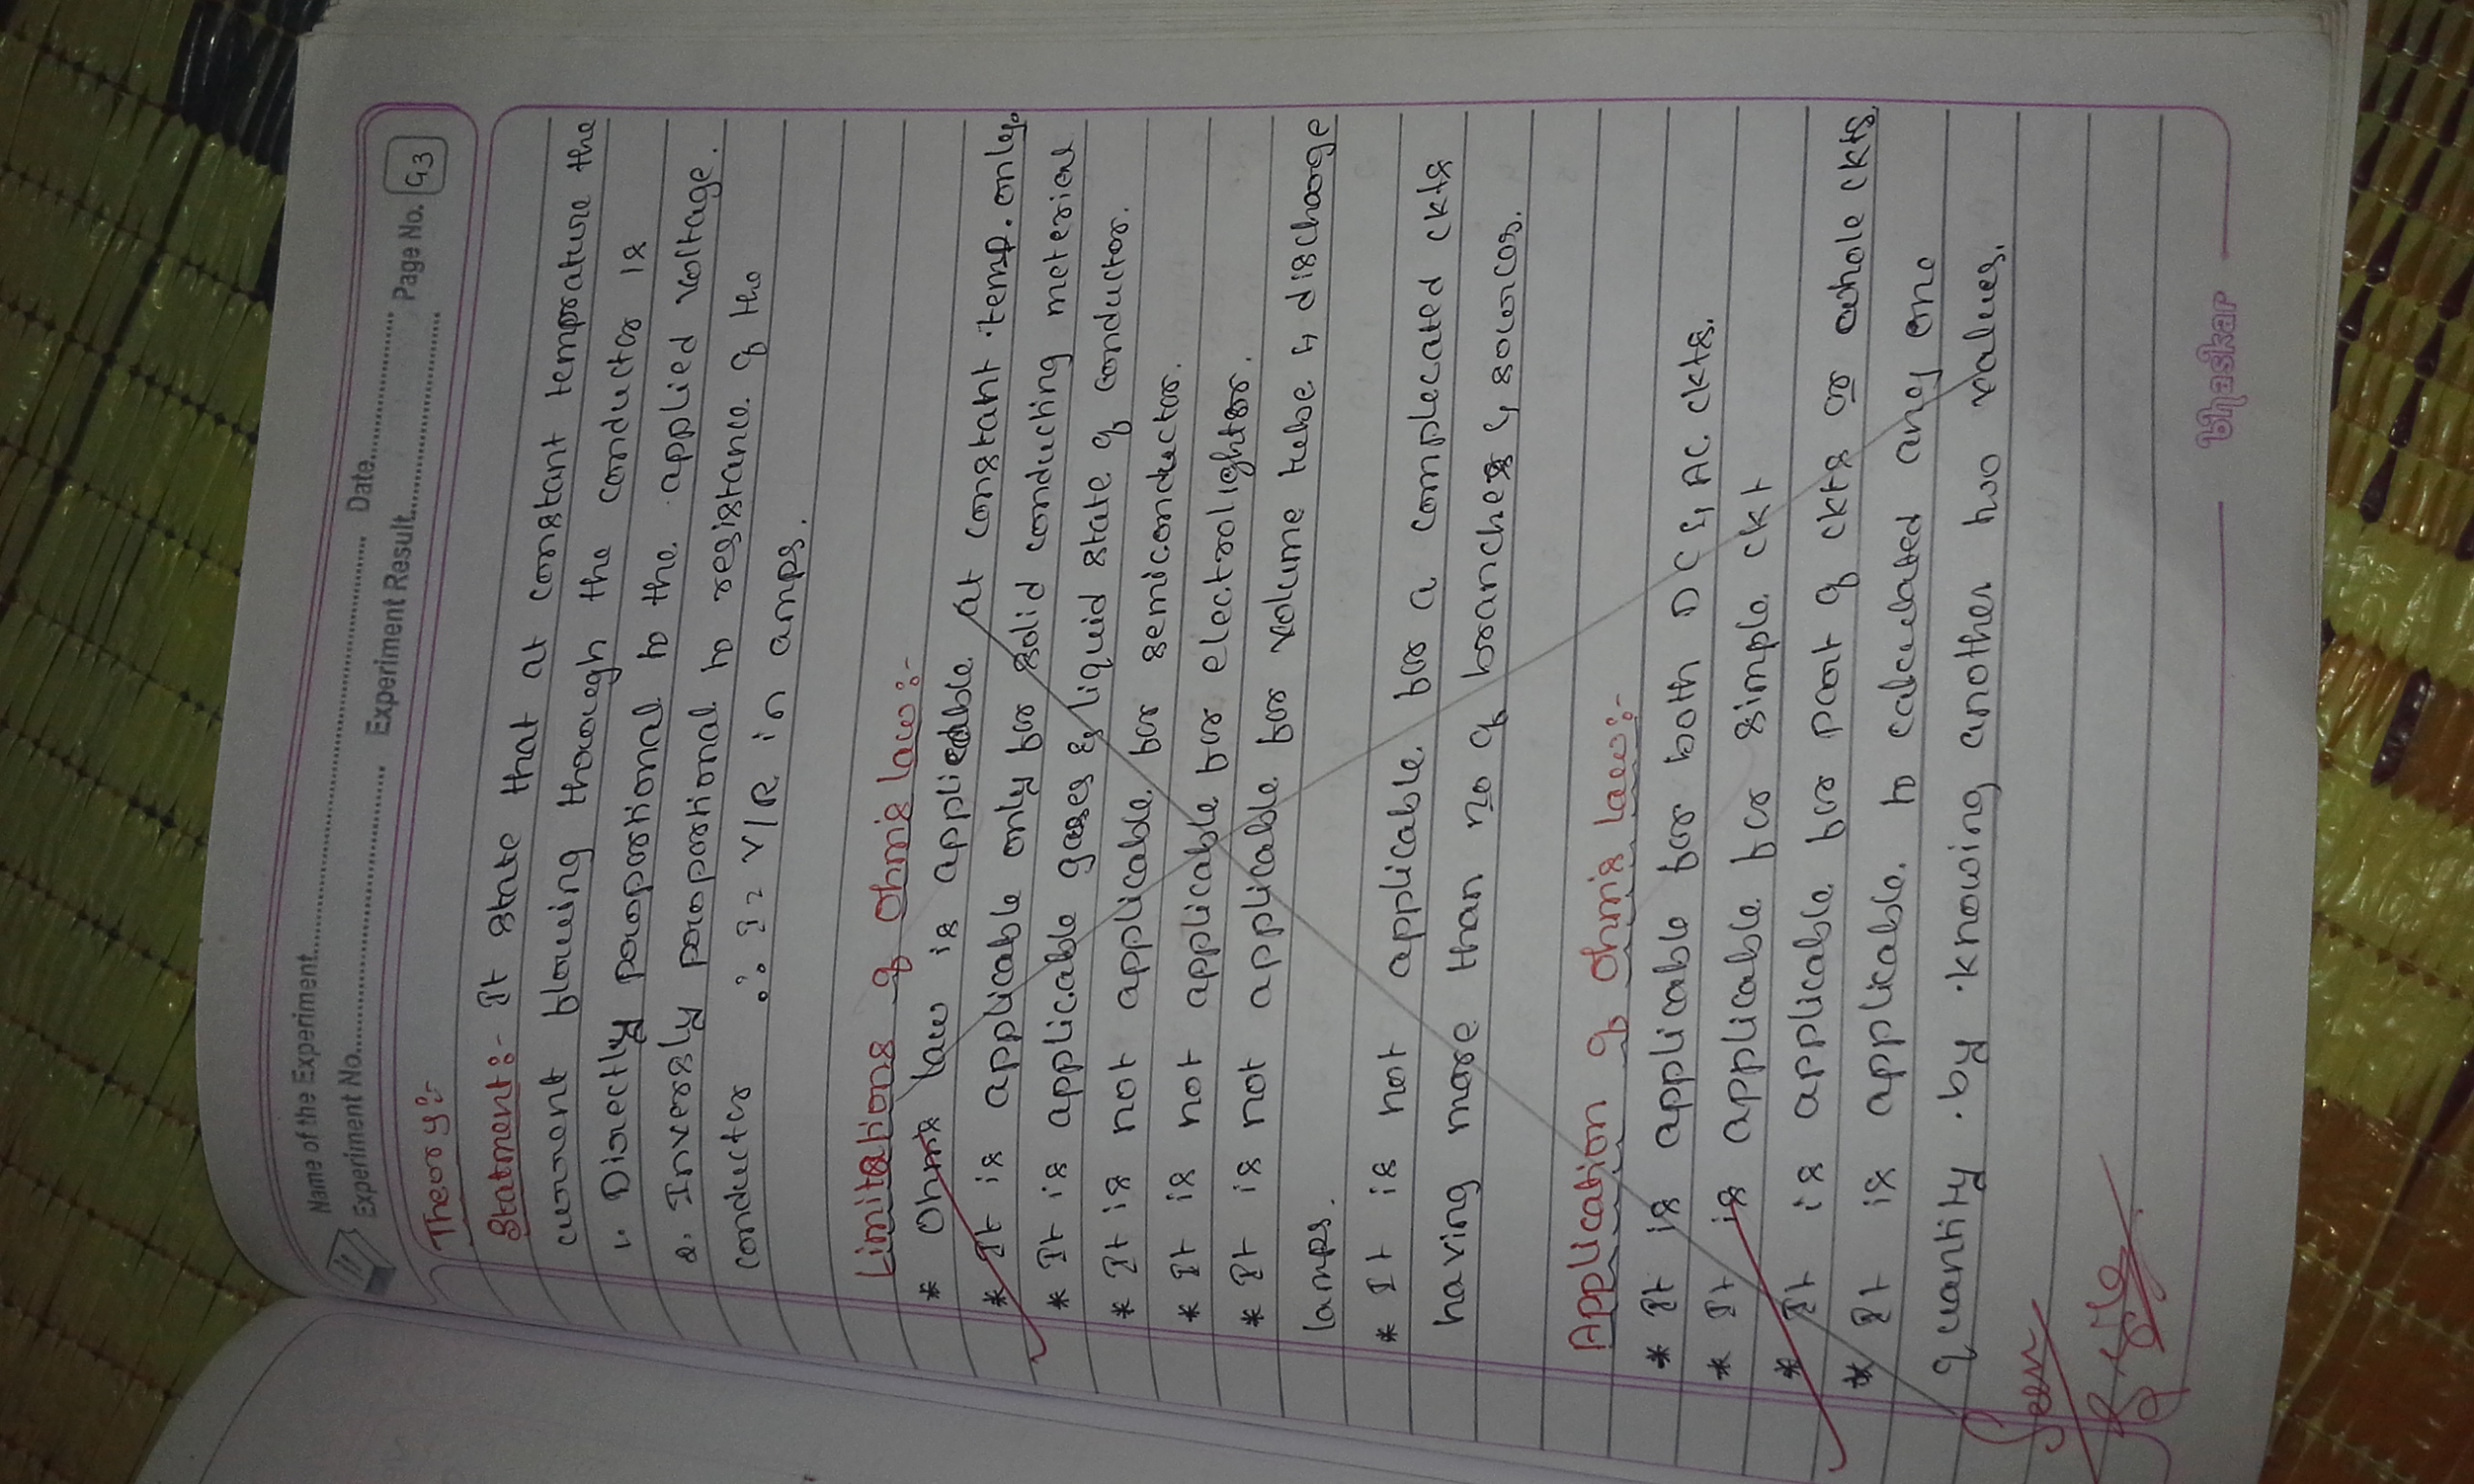 Name of the Experiment.................... Date....................
Experiment No.................... Experiment Result.................... Page No. 93
Theory:-
Statment:- It state that at constant temprature the
current flowing through the conductor is
1. Directly praportional to the applied voltage.
2. Inversly praportional to resistance of the
conductor ∴ I = V/R in amps.
Limitations of Ohm's law:-
* Ohm's law is applicable at constant temp. only.
* It is applicable only for solid conducting meterial
* It is applicable gases & liquid state of conductor.
* It is not applicable for semiconductor.
* It is not applicable for electrolighter.
* It is not applicable for volume tube & discharge
lamps.
* It is not applicable for a complecated ckts
having more than no of branches & sources.
Application of Ohm's law:-
* It is applicable for both DC & AC ckts.
* It is applicable for simple ckt
* It is applicable for part of ckts or whole ckts
* It is applicable to calculated any one
quantity by knowing another two values.
Seen
bhaskar